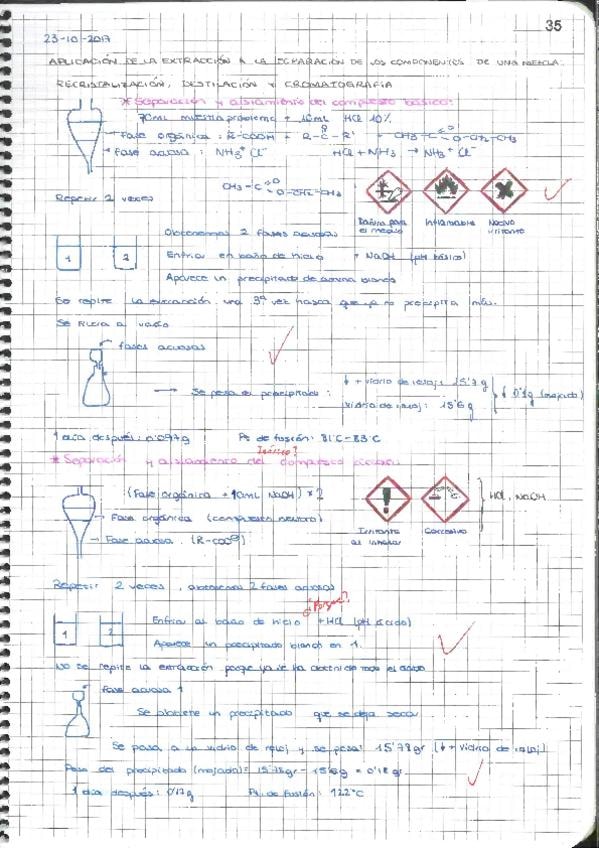 35
23-10-2017
APLICACIÓN DE LA EXTRACCIÓN A LA SEPARACIÓN DE LOS COMPONENTES DE UNA MEZCLA.
RECRISTALIZACIÓN, DESTILACIÓN Y CROMATOGRAFÍA
* Separación y aislamiento del compuesto básico:
70mL muestra problema + 10mL HCl 10%
Fase orgánica: R-COOH + R-C-R' + CH3-C O-CH2-CH3
Fase acuosa: NH3+ Cl- HCl + NH3 → NH3+ Cl-
CH3-C O-CH2-CH3
Repetir 2 veces
Dañino para el medio
Inflamable
Nocivo irritante
Obtenemos 2 fases acuosas
1 2 Enfriar en baño de hielo + NaOH (pH básico)
Aparece un precipitado de amina blanco
Se repite la extracción una 3ª vez hasta que ya no precipita más.
Se filtra a vacío
fases acuosas
→ Se pesa el precipitado:
↓ + vidrio de reloj: 15'7 g
vidrio de reloj: 15'6 g
↓ 0'1g (mojado)
1 día después: 0'097g Pt de fusión: 81°C-83°C
Teórico?
* Separación y aislamiento del compuesto
(Fase orgánica + 10mL NaOH) x 2
Fase orgánica (compuesto neutro)
Fase acuosa (R-COO⊖)
Irritante al inhalar
Corrosivo
HCl, NaOH
Repetir 2 veces, obtenemos 2 fases acuosas
¿Porque?
1 2 Enfriar al baño de hielo + HCl (pH ácido)
Aparece un precipitado blanco en 1.
No se repite la extracción porque ya se ha obtenido todo el ácido
fase acuosa 1
Se obtiene un precipitado que se deja secar
Se pasa a la vidrio de reloj y se pesa: 15'78gr (↓ + vidrio de reloj)
Peso del precipitado (mojado) = 15'78gr - 15'6g = 0'18gr.
1 día después: 0'12g Pt. de fusión: 122°C